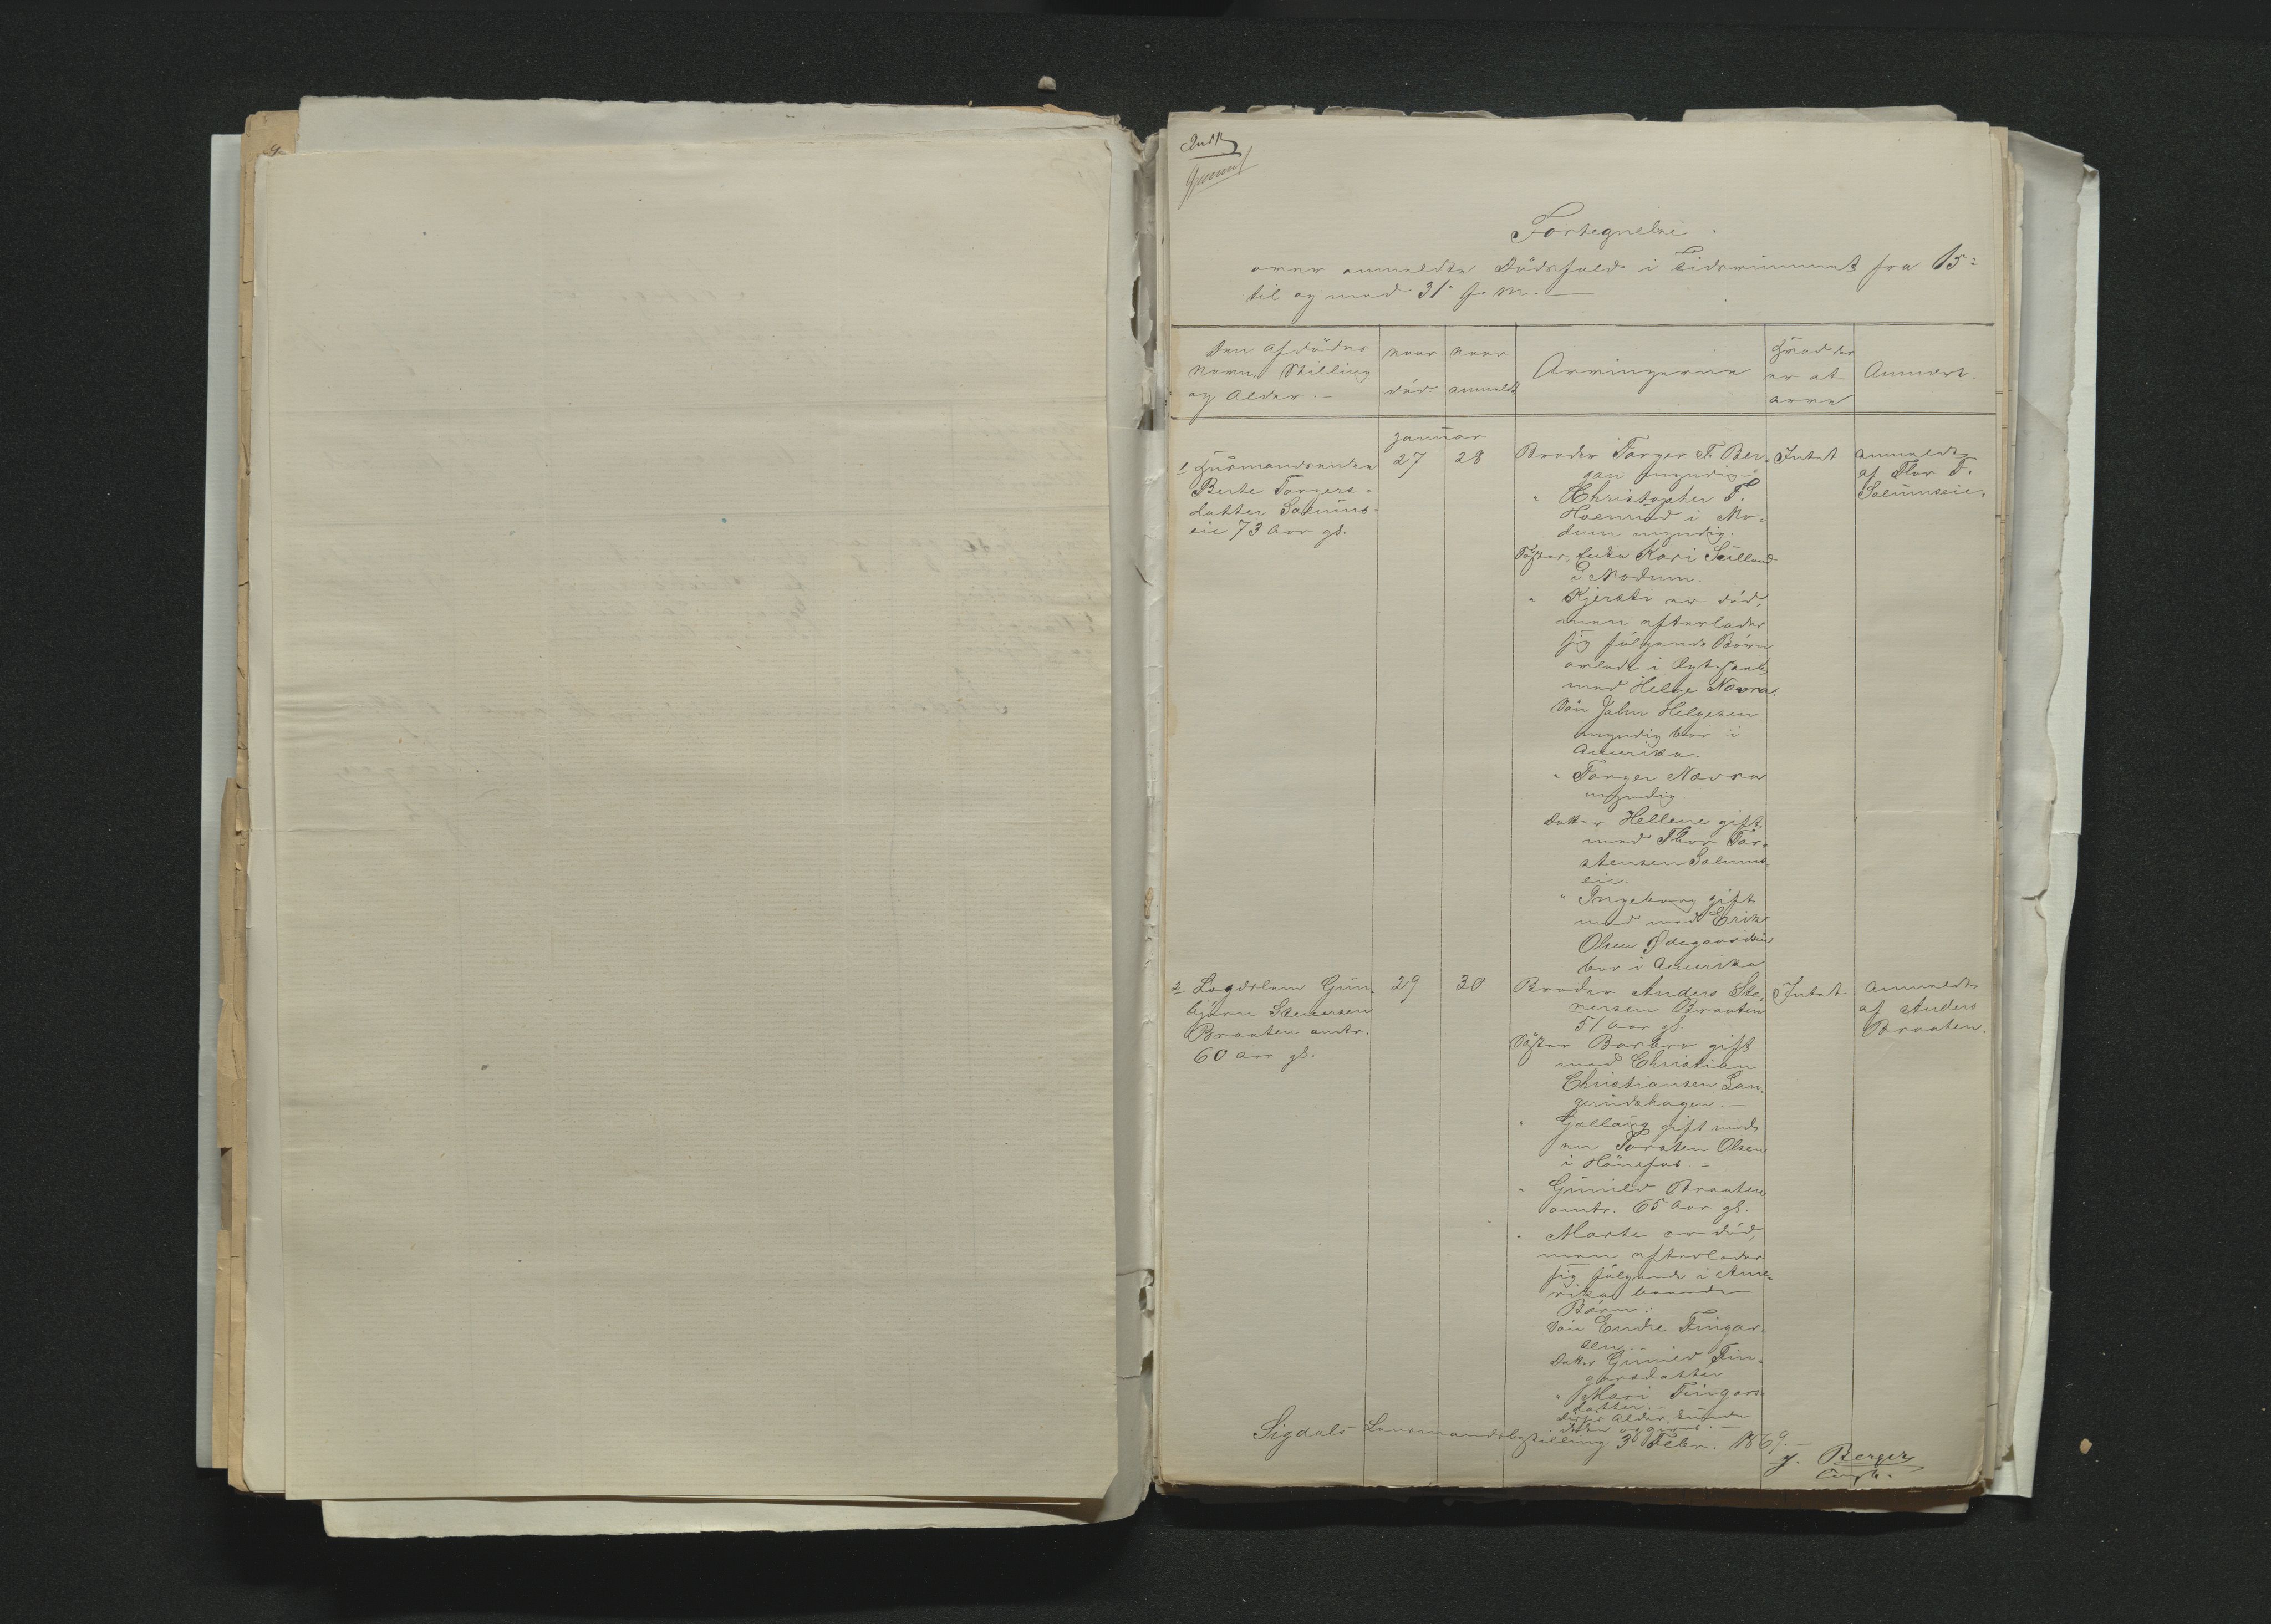 Fortegnelse.
over anmeldte Dödsfald i Tidsrummet fra 15de
til og med 31 f. M. —
Den afdödes
Navn, Stilling
og Alder. —
naar
död
naar
anmeldt
Arvingerne
Hvad der
er at
arve
Anmærk.
Januar
1 Husmandsenken
Berte Torgers-
datter Solums-
eie 73 Aar gl.
27
28
Broder Torger T. Ber-
gan myndig
" Christopher T.
Hoenrud i Mo-
dum myndig.
Söster, Enke Kari
i Modum.
" Kjersti er död,
men efterlader
sig fölgende Börn
avlede i Egteskab
med Helge Nævra.
Sön John Helgesen
myndig bor i
Amerika.
" Torger Nævra
myndig.
Datter Hellene gift
med Thor Tor-
stensen Solums-
eie.
" Ingeborg gift
med med Erik
Olsen Ödegaarden
bor i Amerika
Intet
anmeldt
af Thor T.
Solumseie.
2 Logdslem Gun-
björn Steenersen
Braaten omtr.
60 Aar gl.
29
30
Broder Anders Ste-
nersen Braaten
51 Aar gl.
Söster Barbro gift
med Christian
Christiansen Lan-
gerudshagen. —
" Gjöllaug gift med
en Torsten Olsen
i Hönefos —
" Gunild Braaten
omtr. 65 Aar gl.
" Marte er död,
men efterlader
sig fölgende i Ame-
rika boende
Börn:
Sön Endre Fingar-
sen.
Datter Gunild Fin-
garsdatter
" Mari Fingars-
datter. —
disses Alder kunde
ikke opgives. —
Intet
Anmeldt
af Anders
Braaten.
Sigdals Lensmandsbestilling 3 Febr. 1869. —
Berger